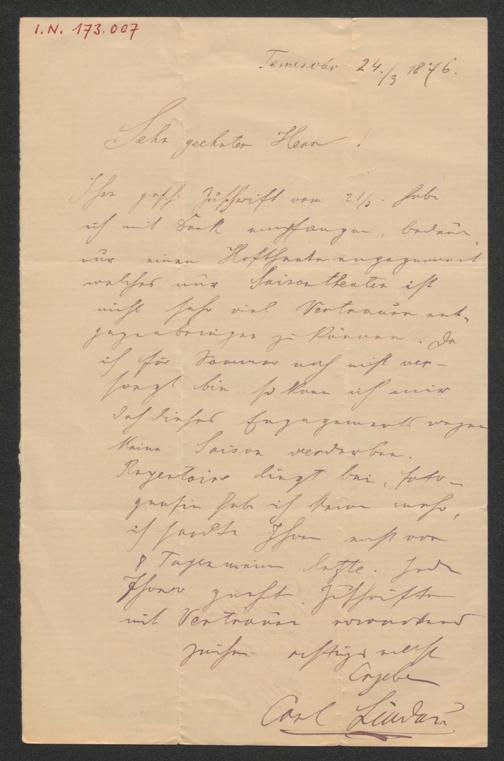 I.N. 173.007
Temesvár 24./3 1876.
Sehr geehrter Herr!
Ihre gesch. Zuschrift vom 21/3. habe
ich mit Dank empfangen, bedaure
nur einem Hoftheaterengagement
welches nur Saisontheater ist
nicht sehr viel Vertrauen ent-
gegenbringen zu können. Da
ich für Sommer noch nicht ver-
sorgt bin so kann ich mir
doch dieses Engagements wegen
keine Saison verderben.
Repertoire liegt bei, Foto-
grafie habe ich keine mehr,
ich sandte Ihnen erst vor
8 Tagen meine letzte.
Ihren gesch. Zuschriften
mit Vertrauen erwartend
zeichne
Carl Lindau